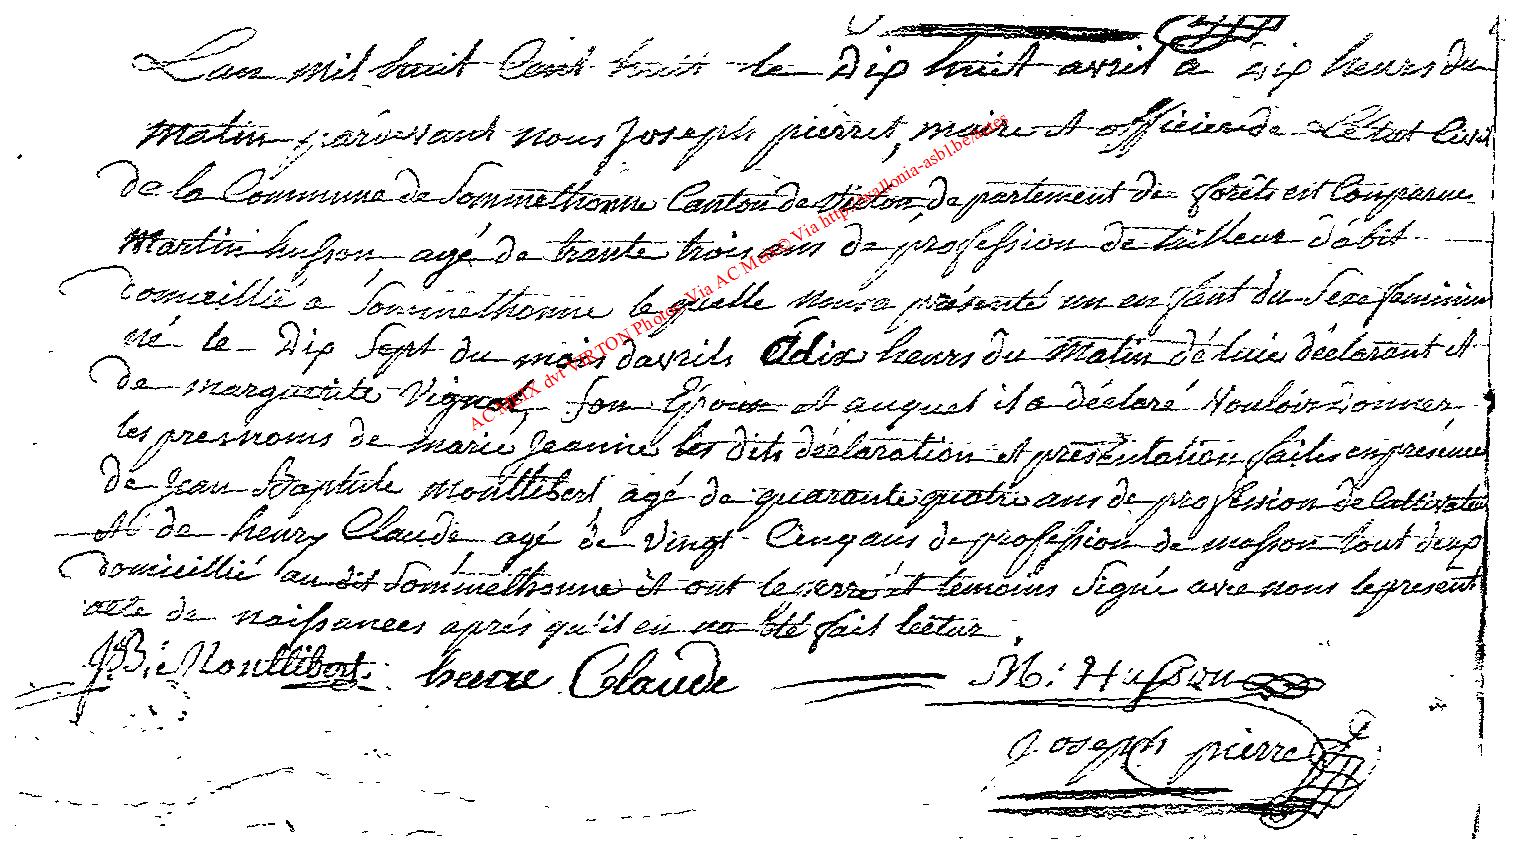 L'an mil huit Cent huit le Dix huit avril a Dix heurs du
Matin pardevant nous Joseph pierret, maire et officier de L'Etat Civil
de la Commune de Sommethonne Canton de Virton, departement de forêts est Comparue
Martin husson, agé de trante trois ans de profession de tailleur dabit
domicillié a Sommethonne le quelle nous a présenté un enfant du Sexe feminin
né le Dix Sept du mois davrils adix heurs du Matin de luie déclarant et
de margueritte son Epouse et auquel il a déclaré Vouloir Donner
les presnoms de marie Jeanne les dits déclaration et présentation faites en présence
de Jean Baptiste Moutlibert agé de quarante quatre ans de profession de Cattivateur
Et de henry Claude agé de Vingt Cinq ans de profession de masson tout deux
domicillié au dit Sommethonne et ont le perre et temoins Signé avec nous le present
acte de naissances aprés qu'il en na été fait lectur
J.B. Moutlibert henri Claude M: Husson
Joseph pierret
AC MEIX dvt VIRTON Photos Via AC Meix © Via http://wallonia-asbl.be/actes